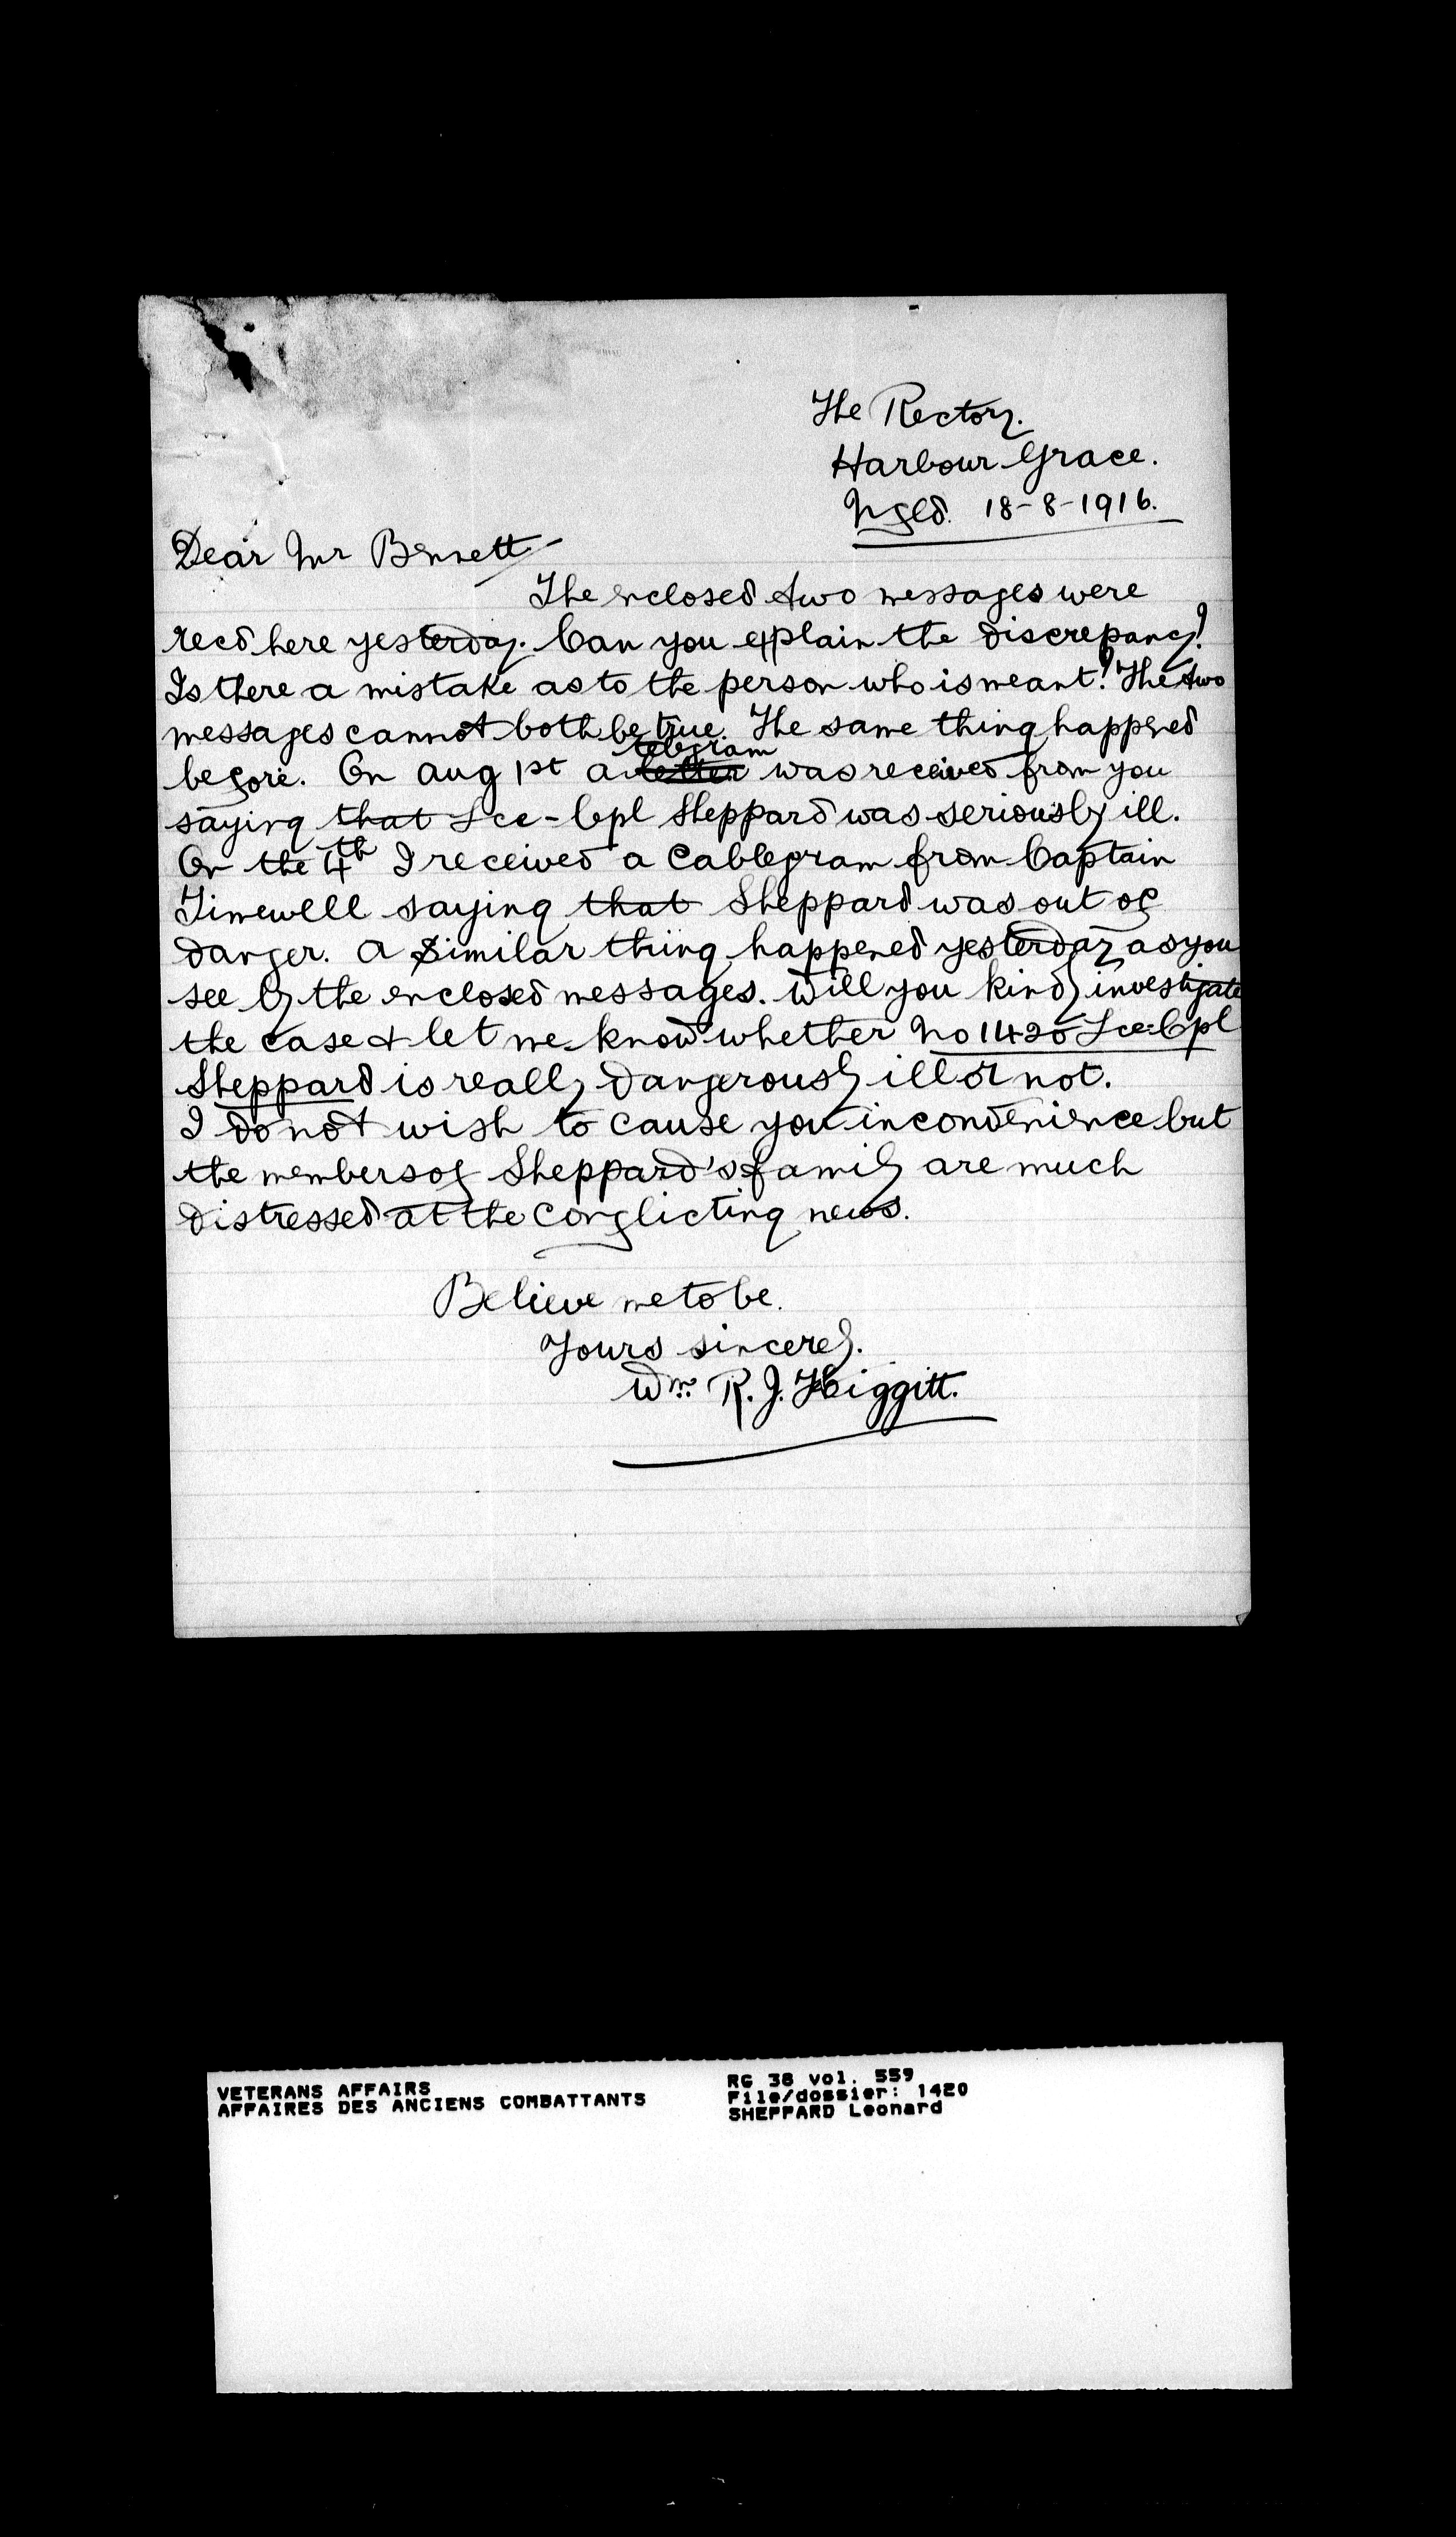 The Rectory.
Harbour Grace.
Nfld. 18-8-1916.
Dear Mr Bennett
The enclosed two messages were
recd here yesterday. Can you explain the discrepancy?
Is there a mistake as to the person who is meant? The two
messages cannot both be true. The same thing happened
telegram
before. On Aug 1st a letter was received from you
saying that Lce-Cpl Sheppard was seriously ill.
On the 4th I received a Cablegram from Captain
Timewell saying that Sheppard was out of
danger. A similar thing happened yesterday as you
see by the enclosed messages. Will you kindly investigate
the case & let me know whether No 1420 Lce-Cpl
Sheppard is really dangerously ill or not.
I do not wish to cause you inconvenience but
the members of Sheppard's family are much
distressed at the conflicting news.
Believe me to be.
Yours sincerely.
Wm. R. J. Higgitt.
VETERANS AFFAIRS
AFFAIRES DES ANCIENS COMBATTANTS
RG 38 Vol. 559
File/dossier: 1420
SHEPPARD Leonard